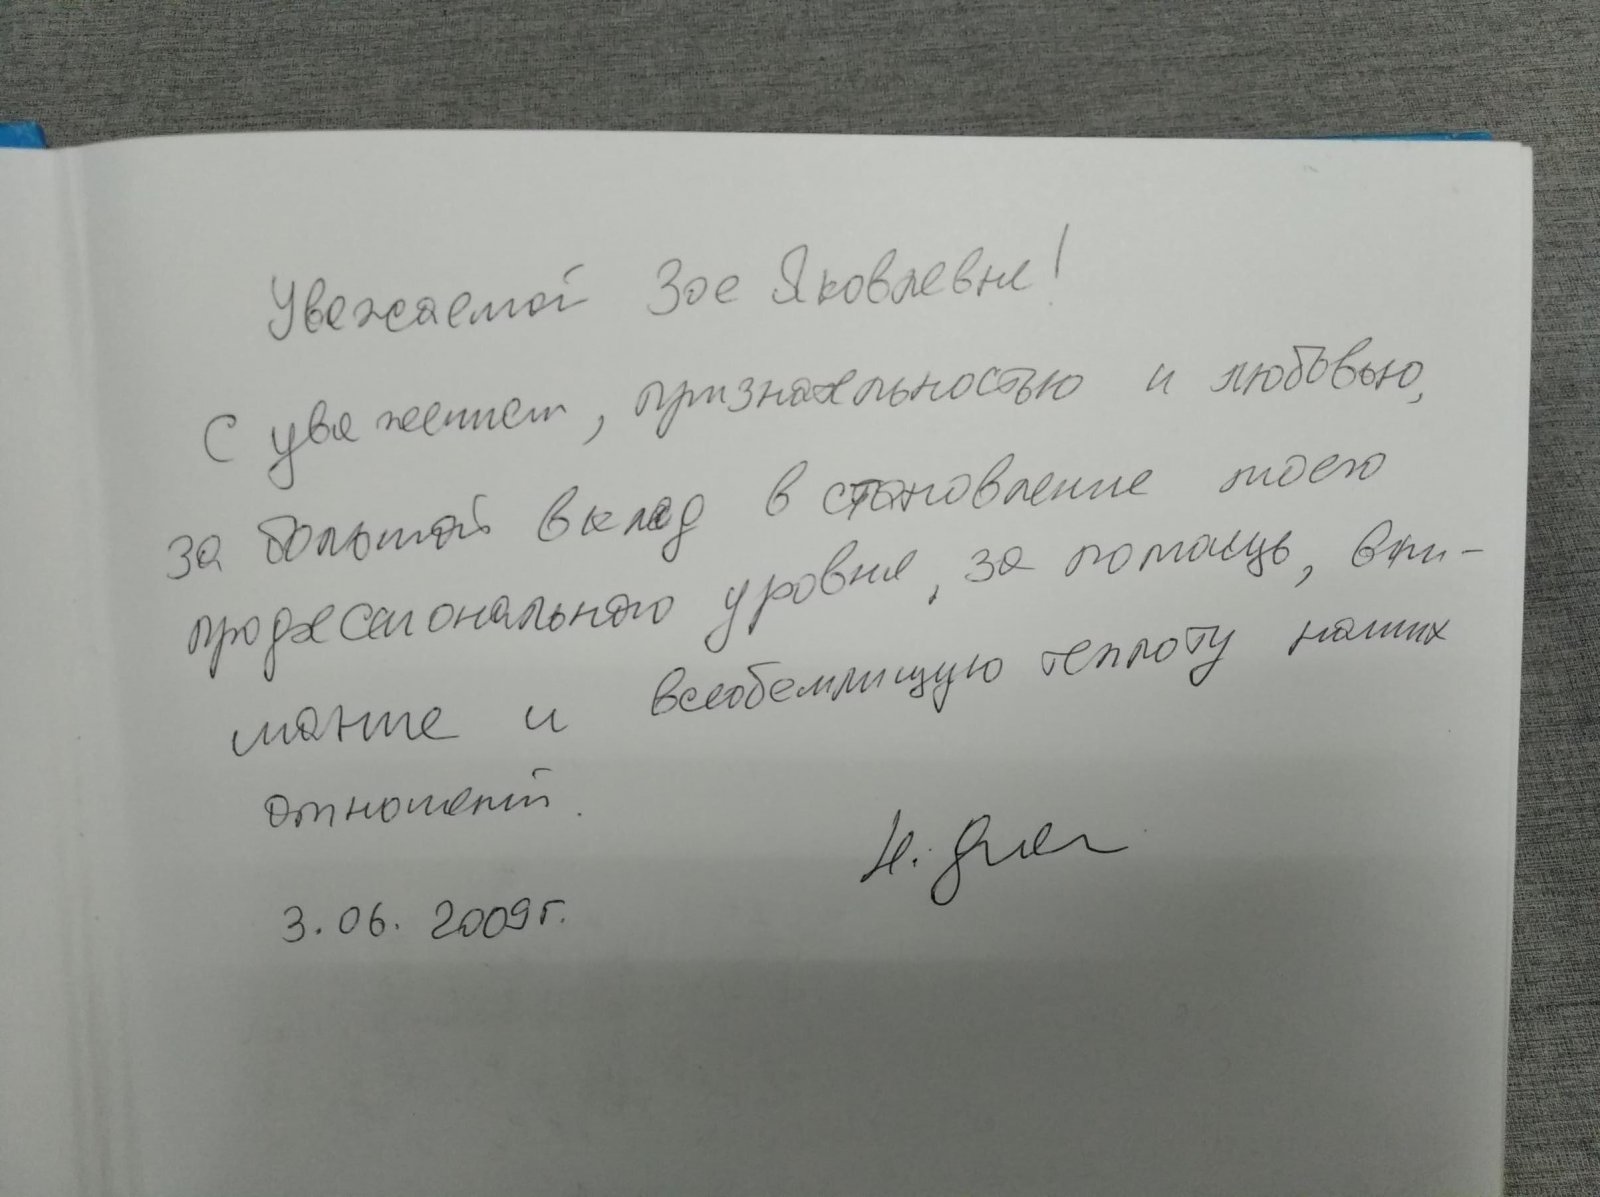 Уважаемой Зое Яковлевне!
С уважением, признательностью и любовью,
за большой вклад в становление моего
профессионального уровня, за помощь, вни-
мание и всеобемлищую теплоту наших
отношений.
3.06.2009г.